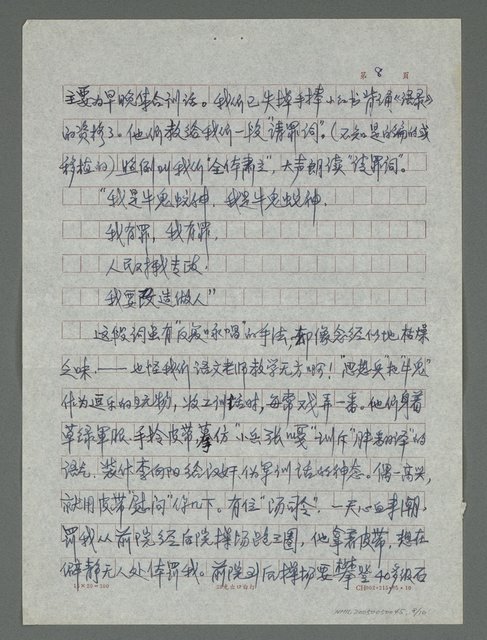 第 8 页
主要为早晚集合训话。我们已失掉手捧小红书背诵《语录》
的资格了。他们教给我们一段“请罪词”。(不知是自编的或
移植的)照例叫我们“全体肃立”，大声朗读“请罪词”。
“我是牛鬼蛇神，我是牛鬼蛇神，
我有罪，我有罪，
人民对我专政，
我要改造做人”
这段词虽有“反复咏唱”的手法，却像念经似地枯燥
乏味，——也怪我们语文老师教学无方啊！“思想兵”把“牛鬼”
作为逗乐的玩物，收工训话时，每常戏弄一番。他们身着
草绿军服、手拎皮带，摹仿“小兵张嘎”训斥“胖翻译”的
语气，装作李向阳给汉奸、伪军训话的神态。偶一高兴，
就用皮带“慰问”你几下。有位“汤司令”，一天心血来潮，
罚我从前院经后院操场跑三圈，他拿着皮带，想在
僻静无人处体罚我。前院到后操场要攀登40多级石
15×20=300
NMHL2005005045 8/10